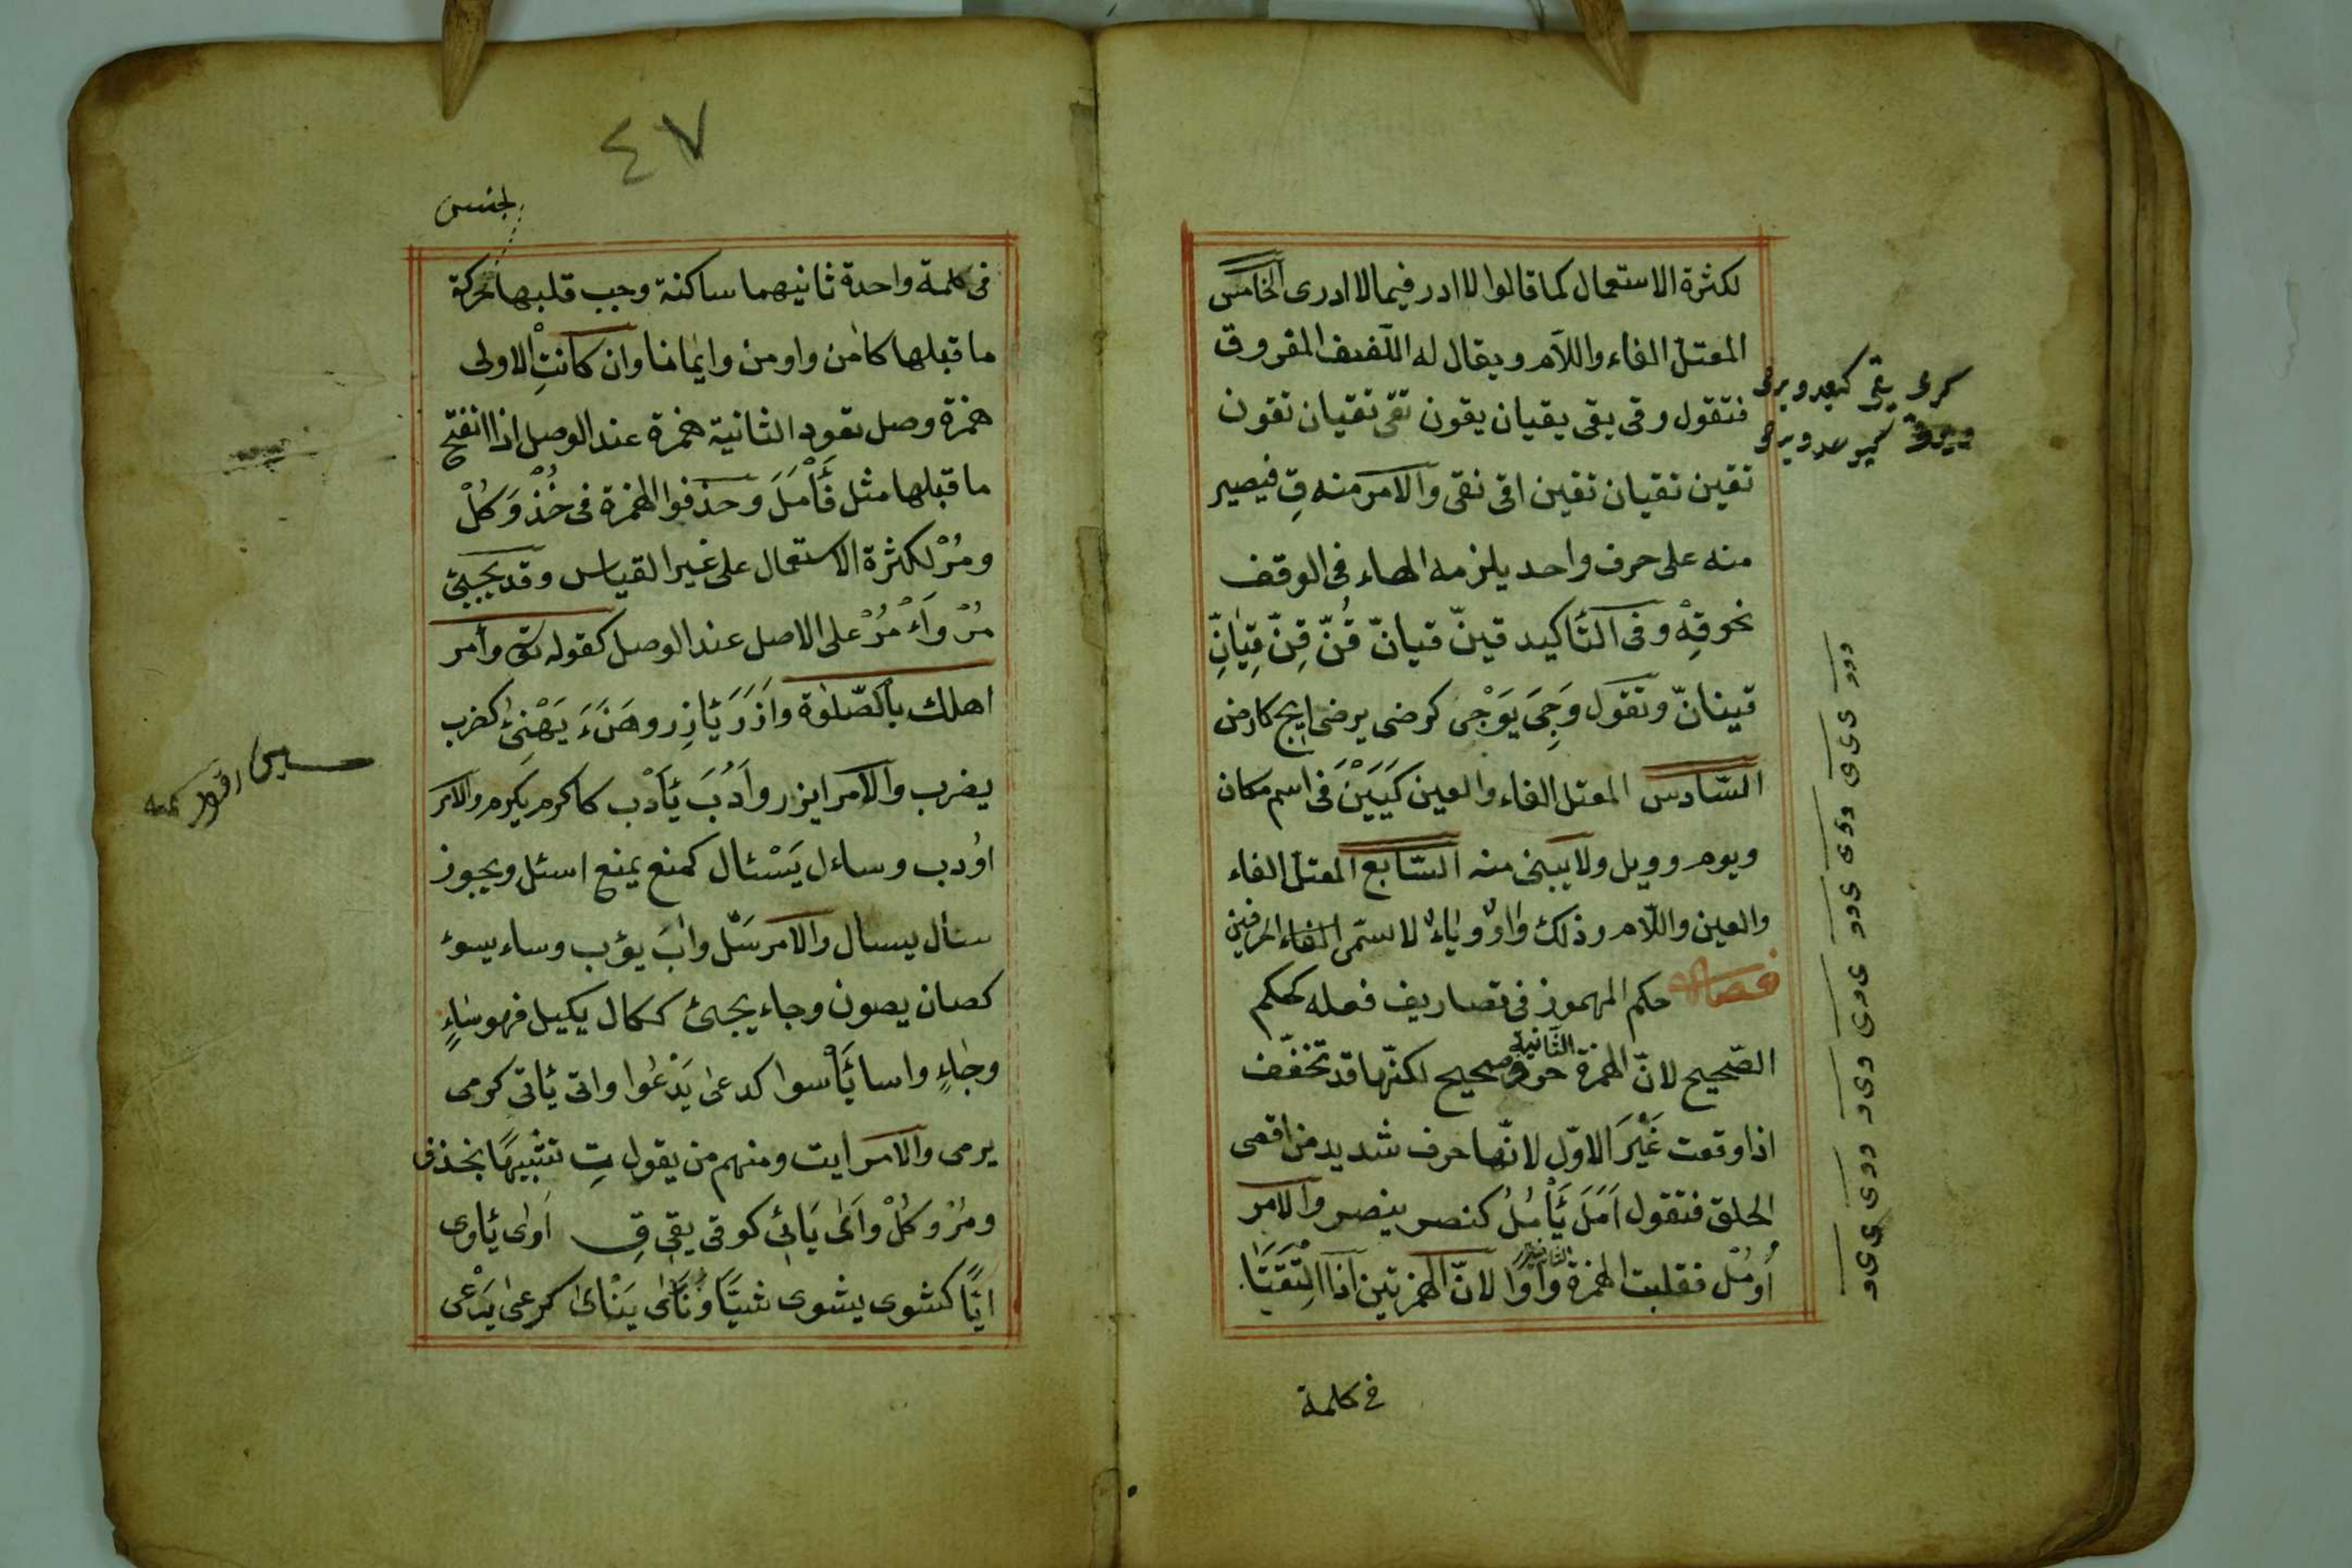 لكثرة الاستعمال كما قالوا لا ادر فيما لا ادرى الخامس
المعتلّ الفاء واللاّم ويقال له اللّفيف المفروق
فتقول وقى يقى يقيان يقون تقى تقيان تقون
تقين تقيان تقين اقى نقى والامر منه قِ فيصير
منه على حرف واحد يلزمه الهاء فى الوقف
نحو قِهْ وفى التّأكيد قينّ قيانّ قُنّ قِنّ قِيٰانِّ
قينانّ وتقول وَجِىَ يَوْجٰى كرضى يرضى ايج كارض
السّادس المعتل الفاء والعين كَيَيَنْ فى اسم مكان
ويوم وويل ولا يبنى منه السّابع المعتلّ الفاء
والعين واللّام وذلك وٰاوٌ ويٰاءٌ لاسمّى الفاء الحرفين
فصل حكم المهموز فى تصاريف فعله كحكم
الصّحيح لانّ الهمزة حرف صحيح لكنّها قد تخفّف
الثّانية
اذا وقعت غَيْرَ الاوّل لانّها حرف شديد من اقصى
الحلق فتقول اَمَلَ يَأْمُلُ كنصر ينصر والامر
اُومُلْ فقلبت الهمزة واوا لانّ الهمزتين اذا الْتَقَتٰا
الثانية
فى كلمة
٤٧
لجنس
فى كلمة واحدة ثانيهما ساكنة وجب قلبها بحركة
ما قبلها كاٰمن واومن وايمٰانا وان كانتِ الاولى
همزة وصل تعود الثانية همزة عند الوصل اذا انفتح
ما قبلها مثل فَأْمَلَ وحذفوا الهمزة فى خُذْ وَكُلْ
ومُرْ لكثرة الاستعمال على غير القياس وقد يجيئ
مُرْ وَأْمُرْ على الاصل عند الوصل كقوله تعالى وأمر
اهلك بالصّلوٰة واَزَرَ يَأزِر وهَنَءَ يَهْنِئُ كضرب
يضرب والامر ايزر واَدُبَ يَأْدُب كاكرم يكرم والامر
اوُدب وساءل يَسْئال كمنع يمنع اسئل ويجوز
سال يسال والامر سَلْ واٰبَ يؤب وساء يسوء
كصان يصون وجاء يجئ ككال يكيل فهو سٰاءٍ
وجٰاءٍ واسا يَأْسوا كدعىٰ يَدْعُوا واتى يأتى كرمى
يرمى والامر ايت ومنهم من يقول تِ تشبيهًا بخذف
ومُرْ وكُلْ وَاَىٰ يَائى كوقى يقى قِ اَوٰى يأوى
ايًّا كشوى يشوى شيًّا ونَأىٰ يَنْأىٰ كرعىٰ يَرْعٰى